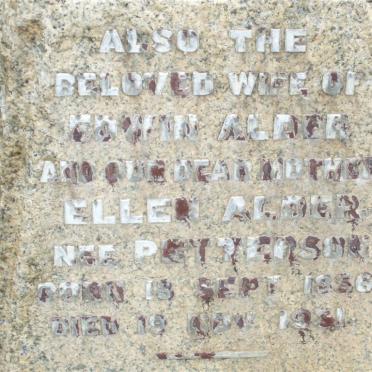 ALSO THE
BELOVED WIFE OF
EDWIN ALDER
AND OUR DEAR MOTHER
ELLEN ALDER
NEE PETTERSON
BORN 18 SEPT 1856
DIED 19 NOV 1931